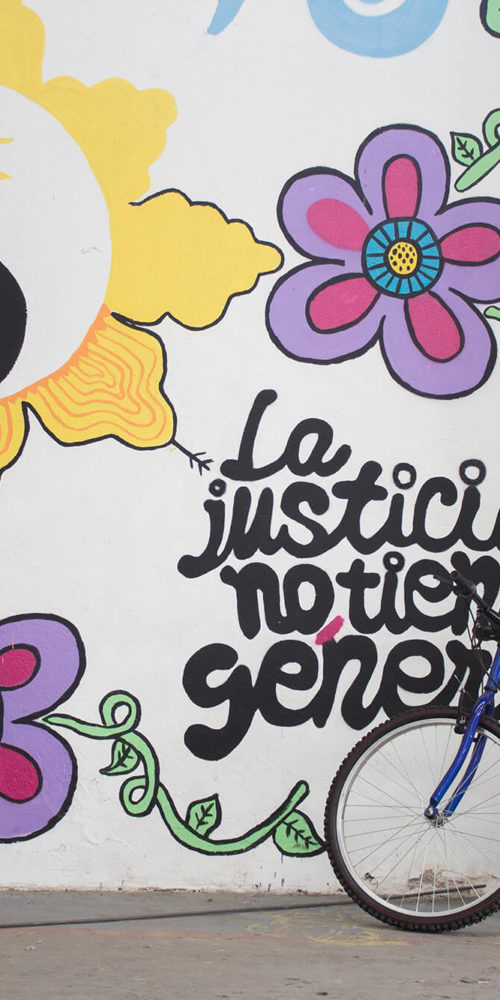 La
justici
no tien
géner